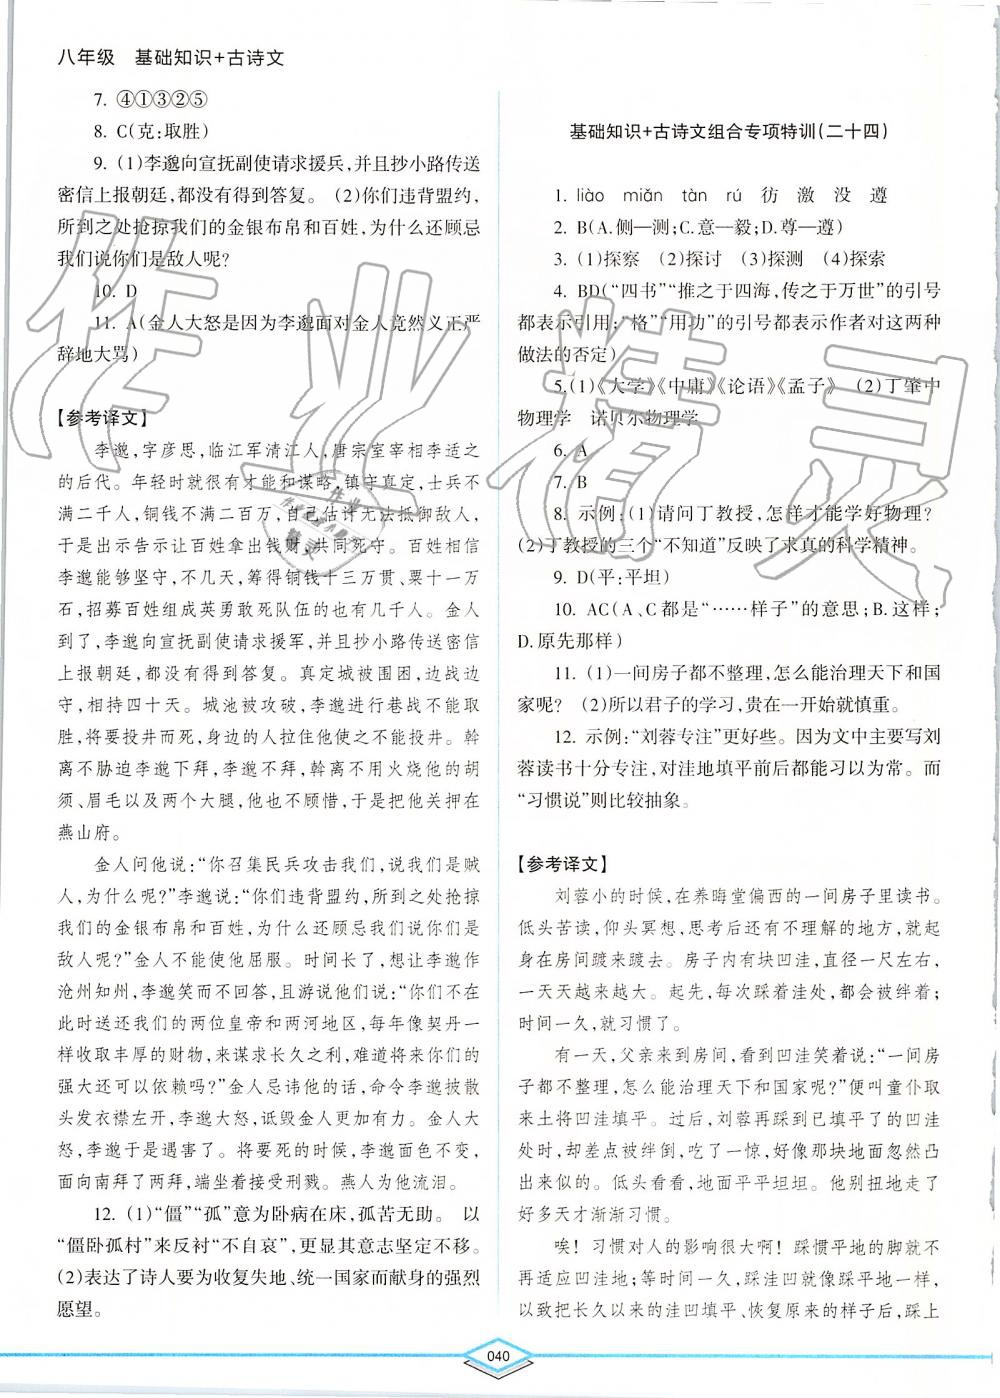 八年级 基础知识+古诗文
7. ④①③②⑤
8. C(克:取胜)
9. (1)李邈向宣抚副使请求援兵,并且抄小路传送
密信上报朝廷,都没有得到答复。 (2)你们违背盟约,
所到之处抢掠我们的金银布帛和百姓,为什么还顾忌
我们说你们是敌人呢?
10. D
11. A(金人大怒是因为李邈面对金人竟然义正严
辞地大骂)
【参考译文】
李邈,字彦思,临江军清江人,唐宗室宰相李适之
的后代。年轻时就很有才能和谋略,镇守真定,士兵不
满二千人,铜钱不满二百万,自己估计无法抵御敌人,
于是出示告示让百姓拿出钱财,共同死守。百姓相信
李邈能够坚守,不几天,筹得铜钱十三万贯、粟十一万
石,招募百姓组成英勇敢死队伍的也有几千人。金人
到了,李邈向宣抚副使请求援军,并且抄小路传送密信
上报朝廷,都没有得到答复。真定城被围困,边战边
守,相持四十天。城池被攻破,李邈进行巷战不能取
胜,将要投井而死,身边的人拉住他使之不能投井。斡
离不胁迫李邈下拜,李邈不拜,斡离不用火烧他的胡
须、眉毛以及两个大腿,他也不顾惜,于是把他关押在
燕山府。
金人问他说:“你召集民兵攻击我们,说我们是贼
人,为什么呢?”李邈说:“你们违背盟约,所到之处抢掠
我们的金银布帛和百姓,为什么还顾忌我们说你们是
敌人呢?”金人不能使他屈服。时间长了,想让李邈作
沧州知州,李邈笑而不回答,且游说他们说:“你们不在
此时送还我们的两位皇帝和两河地区,每年像契丹一
样收取丰厚的财物,来谋求长久之利,难道将来你们的
强大还可以依赖吗?”金人忌讳他的话,命令李邈披散
头发衣襟左开,李邈大怒,诋毁金人更加有力。金人大
怒,李邈于是遇害了。将要死的时候,李邈面色不变,
面向南拜了两拜,端坐着接受刑戮。燕人为他流泪。
12. (1)“僵”“孤”意为卧病在床,孤苦无助。 以
“僵卧孤村”来反衬“不自哀”,更显其意志坚定不移。
(2)表达了诗人要为收复失地、统一国家而献身的强烈
愿望。
基础知识+古诗文组合专项特训(二十四)
1. liào miǎn tàn rú 彷 激 没 遵
2. B(A.侧—测;C.意—毅;D.尊—遵)
3. (1)探察 (2)探讨 (3)探测 (4)探索
4. BD(“四书”“推之于四海,传之于万世”的引号
都表示引用;“格”“用功”的引号都表示作者对这两种
做法的否定)
5.(1)《大学》《中庸》《论语》《孟子》 (2)丁肇中
物理学 诺贝尔物理学
6. A
7. B
8. 示例:(1)请问丁教授,怎样才能学好物理?
(2)丁教授的三个“不知道”反映了求真的科学精神。
9. D(平:平坦)
10. AC(A、C都是“……样子”的意思;B.这样;
D.原先那样)
11. (1)一间房子都不整理,怎么能治理天下和国
家呢? (2)所以君子的学习,贵在一开始就慎重。
12. 示例:“刘蓉专注”更好些。因为文中主要写刘
蓉读书十分专注,对洼地填平前后都能习以为常。而
“习惯说”则比较抽象。
【参考译文】
刘蓉小的时候,在养晦堂偏西的一间房子里读书。
低头苦读,仰头冥想,思考后还有不理解的地方,就起
身在房间踱来踱去。房子内有块凹洼,直径一尺左右,
一天天越来越大。起先,每次踩着洼处,都会被绊着;
时间一久,就习惯了。
有一天,父亲来到房间,看到凹洼笑着说:“一间房
子都不整理,怎么能治理天下和国家呢?”便叫童仆取
来土将凹洼填平。过后,刘蓉再踩到已填平了的凹洼
处时,却差点被绊倒,吃了一惊,好像那块地面忽然凸
出来似的。低头看看,地面平平坦坦。他别扭地走了
好多天才渐渐习惯。
唉! 习惯对人的影响很大啊! 踩惯平地的脚就不
再适应凹洼;等时间一久,踩洼凹就像踩平地一样,
以致把长久以来的洼凹填平、恢复原来的样子后,踩上
040
作业精灵